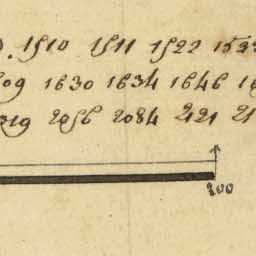 1510 1511 1522 1533
09 1630 1634 1646
319 2056 2084 2121 21
200